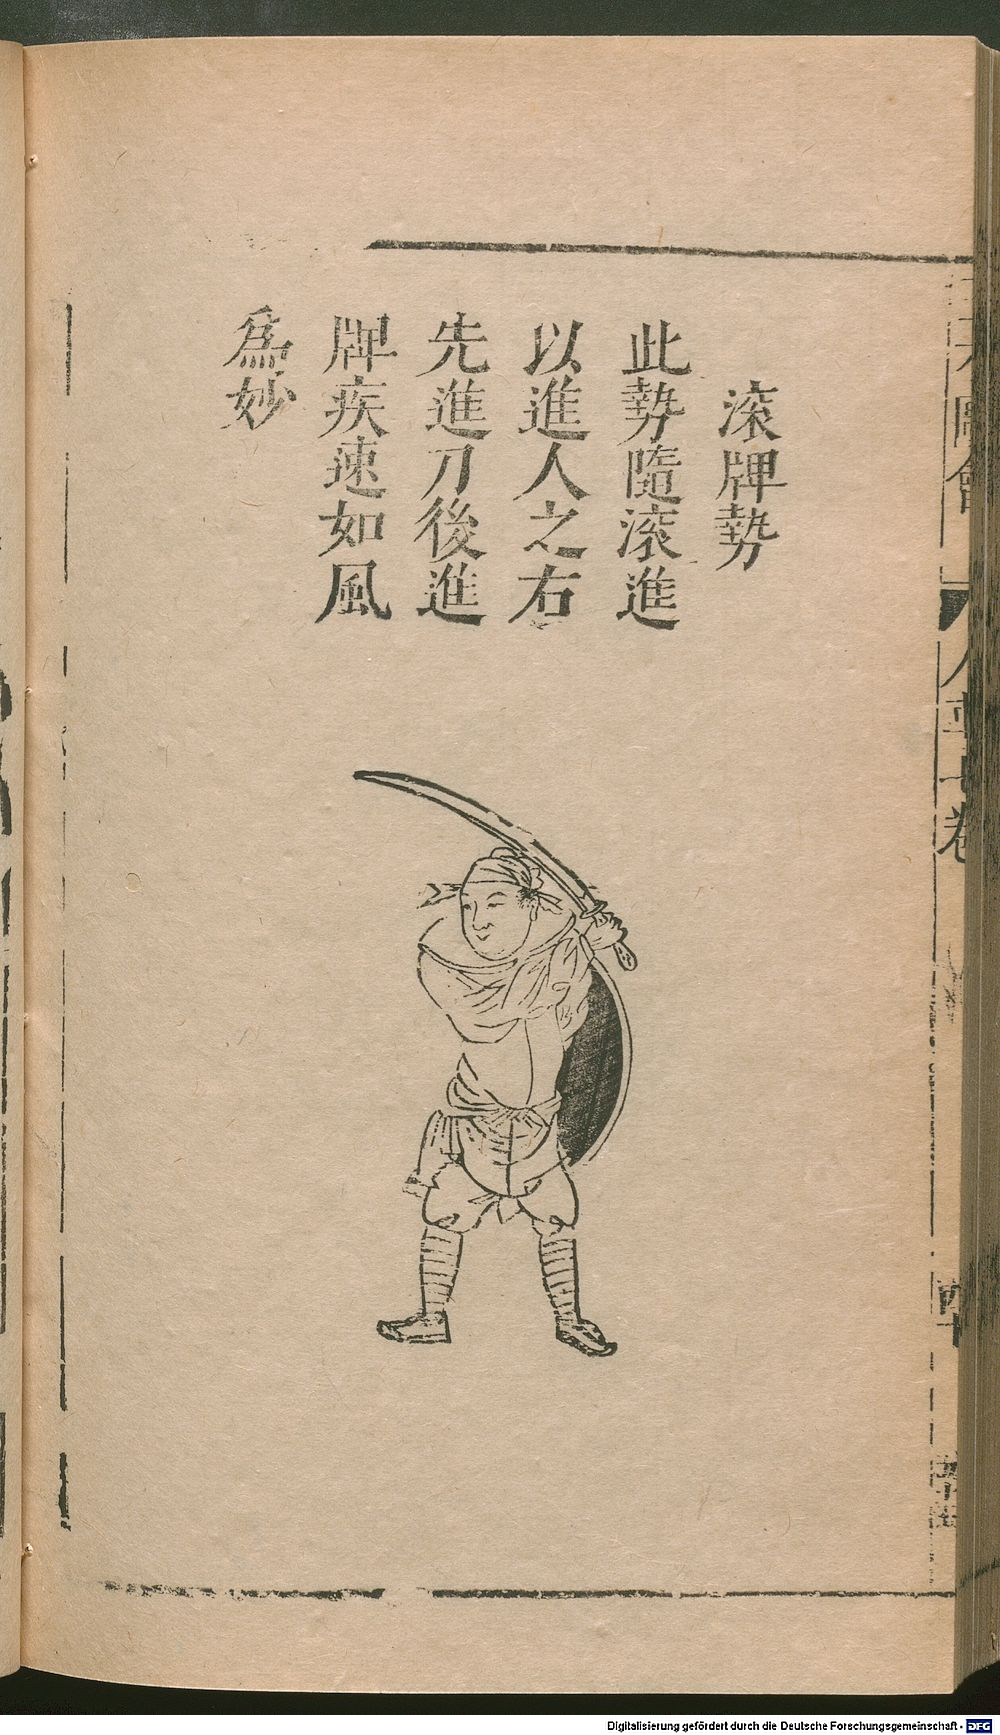 滚牌勢
此勢隨滚進
以進人之右
先進刀後進
牌疾速如風
為妙
Digitalisierung gefördert durch die Deutsche Forschungsgemeinschaft - DFG